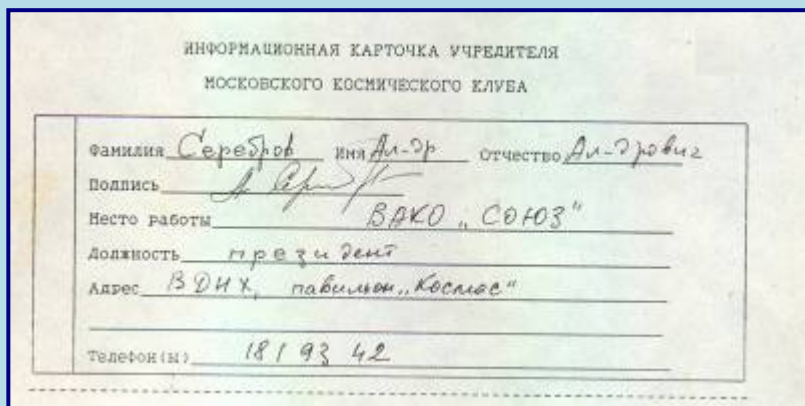 ИНФОРМАЦИОННАЯ КАРТОЧКА УЧРЕДИТЕЛЯ
МОСКОВСКОГО КОСМИЧЕСКОГО КЛУБА
Фамилия Серебров Имя Ал-др Отчество Ал-дрович
Подпись А. Сер
Место работы ВАКО „СОЮЗ"
Должность президент
Адрес ВДНХ, павильон „Космос"
Телефон(ы) 181 93 42